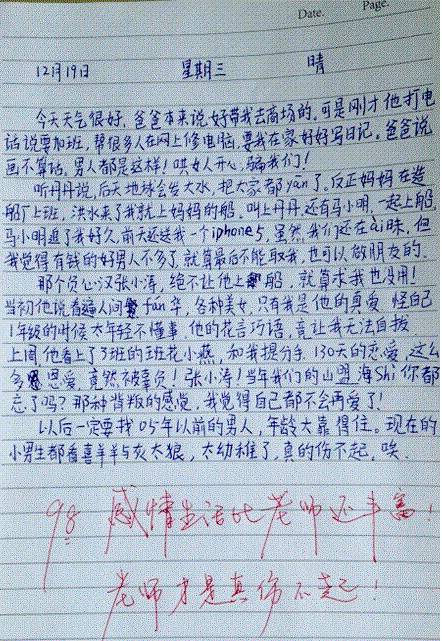 Date.
Page.
12月19日 星期三 晴
今天天气很好，爸爸本来说好带我去商场的，可是刚才他打电
话说要加班，帮很多人在网上修电脑，要我在家好好写日记。爸爸说
画不算话，男人都是这样！哄女人开心，骗我们！
听丹丹说，后天地球会发大水，把大家都yān了。反正妈妈在造
船厂上班，洪水来了我就上妈妈的船，叫上丹丹，还有马小明，一起上船。
马小明追了我好久，前天还送我一个iphone5，虽然我们还在ài昧，但
我觉得有钱的好男人不多了，就算最后不能取我，也可以做朋友的。
那个负心汉张小涛，绝不让他上船，就算求我也没用！
当初他说看遍人间fán华，各种美女，只有我是他的真爱，怪自己
1年级的时候太年轻不懂事，他的花言巧语，竟让我无法自拔
上周他看上了3班的班花小燕，和我提分手，130天的恋爱，这么
多恩爱，竟然被辜负！张小涛！当年我们的山盟海Shì你都
忘了吗？那种背叛的感觉，我觉得自己都不会再爱了！
以后一定要找05年以前的男人，年龄大靠得住。现在的
小男生都看喜羊羊与灰太狼，太幼稚了，真的伤不起，唉．
98 感情生活比老师还丰富！
老师才是真伤不起！